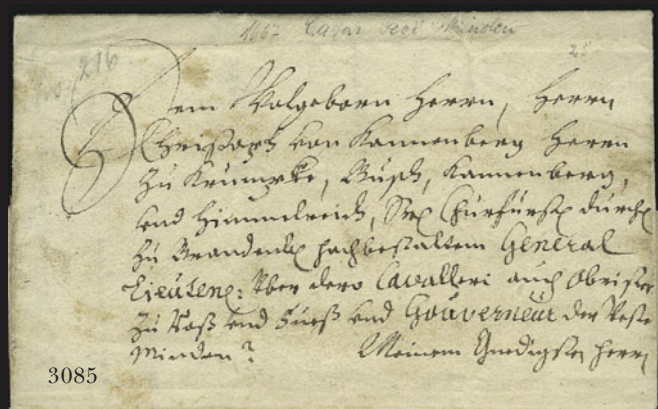 1667
216
25
Dem Wolgeborn Herrn, Herrn
Christoph von Kannenberg Herrn
zu Krumcke, Busch, Kannenberg,
und Himmelreich, Churfürstl durchl
zu Brandenb General
Lieuten: über dero Cavalleri auch Obrister
zu Roß und Fueß und Gouverneur der Veste
Minden
Meinem Gnedigsten Herrn
3085